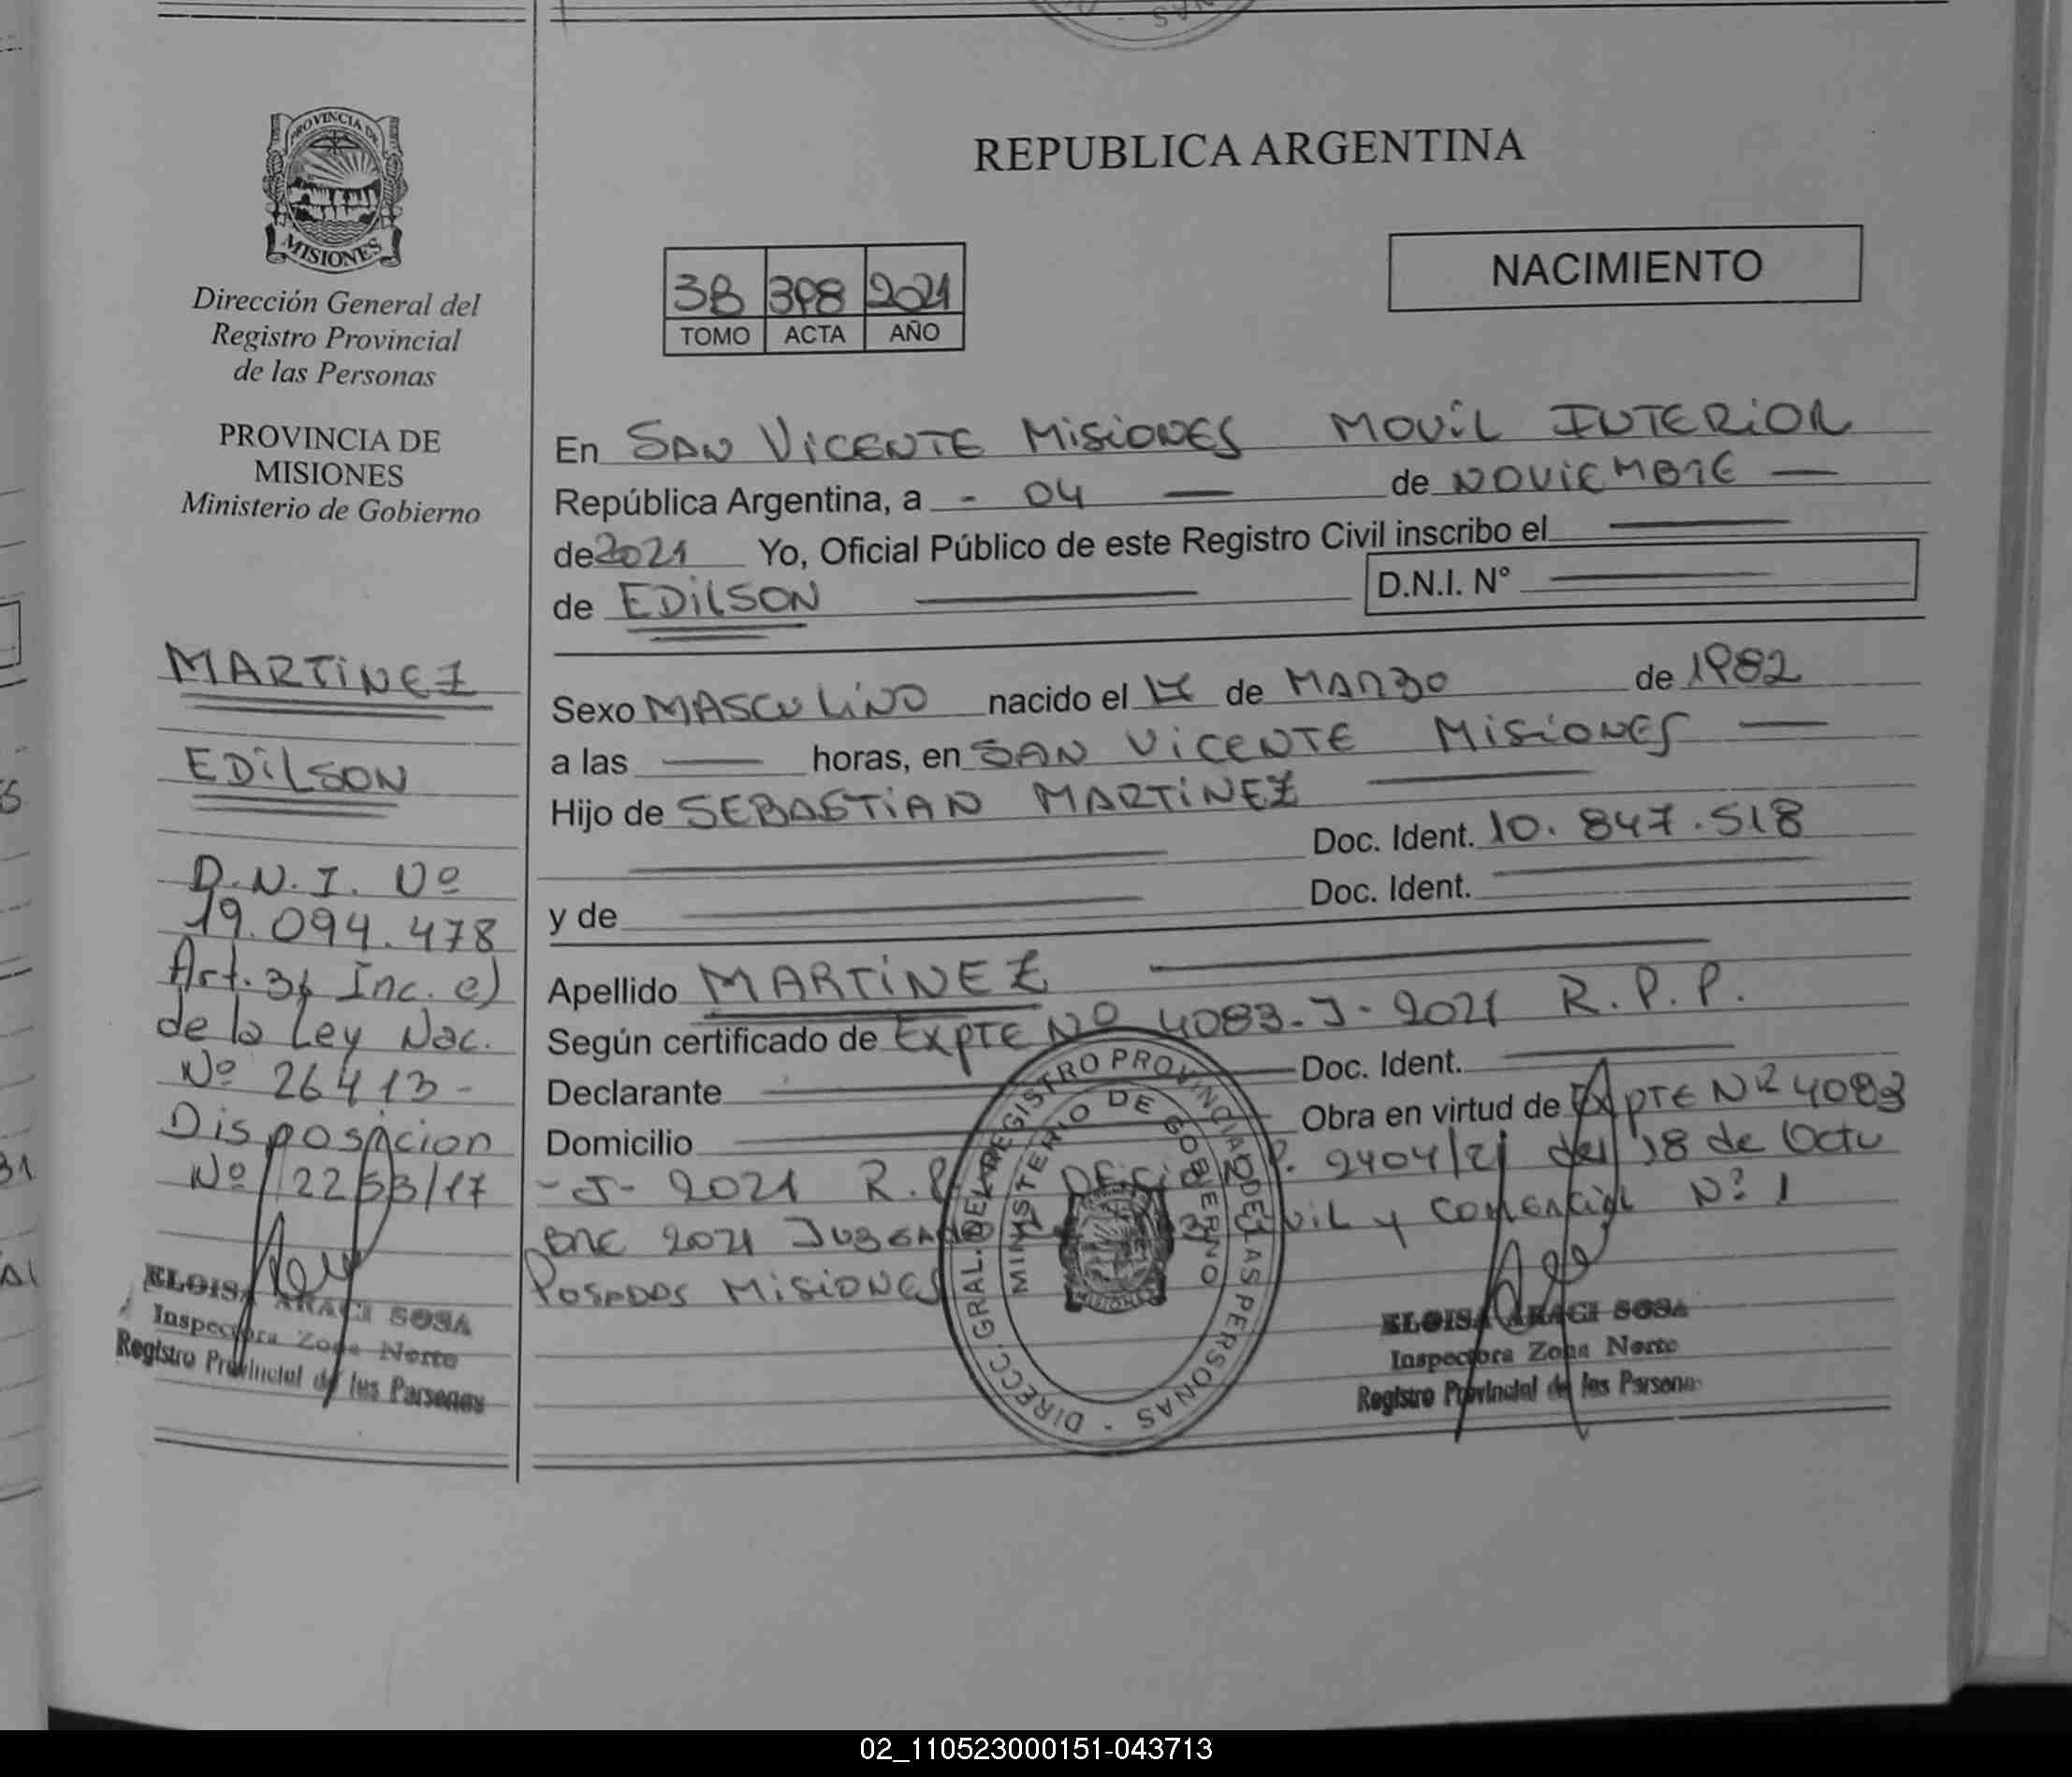 PROVINCIA DE
MISIONES
Dirección General del
Registro Provincial
de las Personas
PROVINCIA DE
MISIONES
Ministerio de Gobierno
MARTINEZ
EDILSON
D.N.I. Nº
19.094.478
Art. 36 Inc. e)
de la Ley Nac.
Nº 26413-
Disposicion
Nº 2253/17
ELOISA ARACI SOSA
Inspectora Zona Norte
Registro Provincial de las Personas
REPUBLICA ARGENTINA
NACIMIENTO
3B 398 2021
TOMO ACTA AÑO
En SAN VICENTE MISIONES MOVIL INTERIOR
República Argentina, a - 04 — de NOVIEMBRE —
de 2021 Yo, Oficial Público de este Registro Civil inscribo el —
de EDILSON — D.N.I. N° —
Sexo MASCULINO nacido el 17 de MARZO de 1982
a las — horas, en SAN VICENTE MISIONES —
Hijo de SEBASTIAN MARTINEZ —
— Doc. Ident. 10.847.518
y de — Doc. Ident. —
Apellido MARTINEZ —
Según certificado de EXPTE Nº 4083-J-2021 R.P.P.
Declarante — Doc. Ident. —
Domicilio — Obra en virtud de EXPTE Nº 4083
-J- 2021 R.P. 2404/21 del 18 de Octu
BRE 2021 CIVIL y COMERCIAL Nº 1
POSADAS MISIONES
DIRECC. GRAL. DEL REGISTRO PROVINCIAL DE LAS PERSONAS -
MINISTERIO DE GOBIERNO
MISIONES
ELOISA ARACI SOSA
Inspectora Zona Norte
Registro Provincial de las Personas
02_110523000151-043713